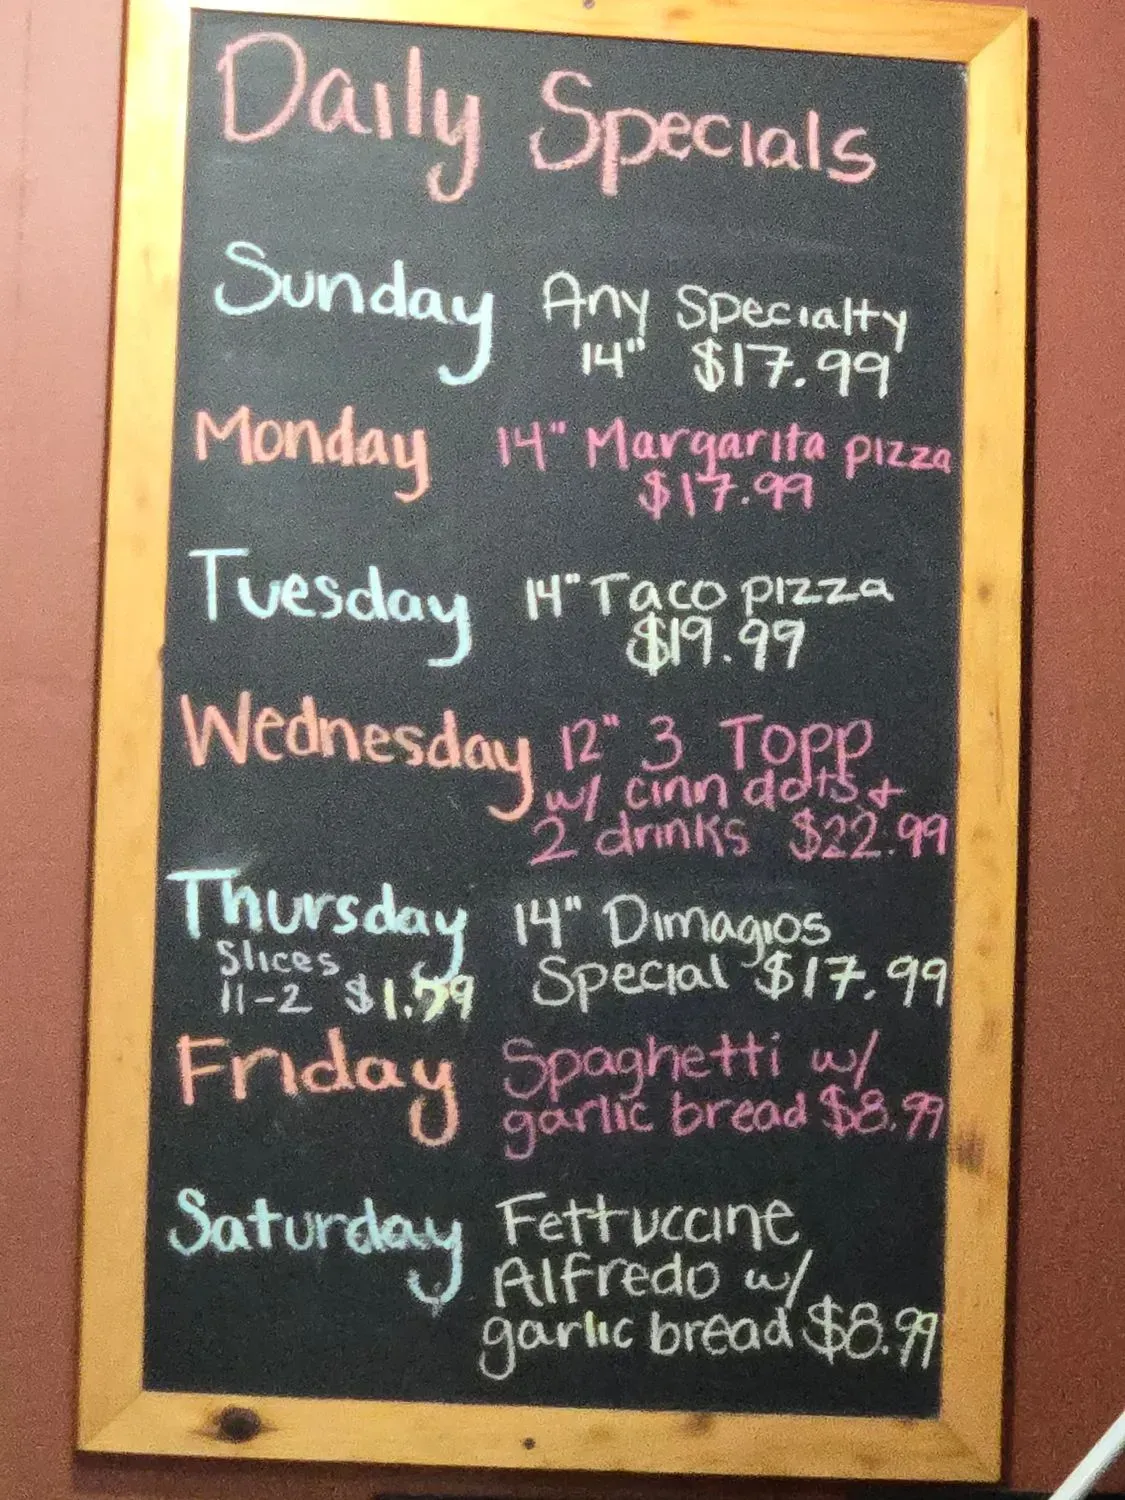 Daily Specials
Sunday Any Specialty
14" $17.99
Monday 14" Margarita pizza
$17.99
Tuesday 14" Taco pizza
$19.99
Wednesday 12" 3 Topp
w/ cinn dots +
2 drinks $22.99
Thursday 14" Dimagios
Special $17.99
Slices
11-2
Friday Spaghetti w/
garlic bread $8.99
Saturday Fettuccine
Alfredo w/
garlic bread $8.99